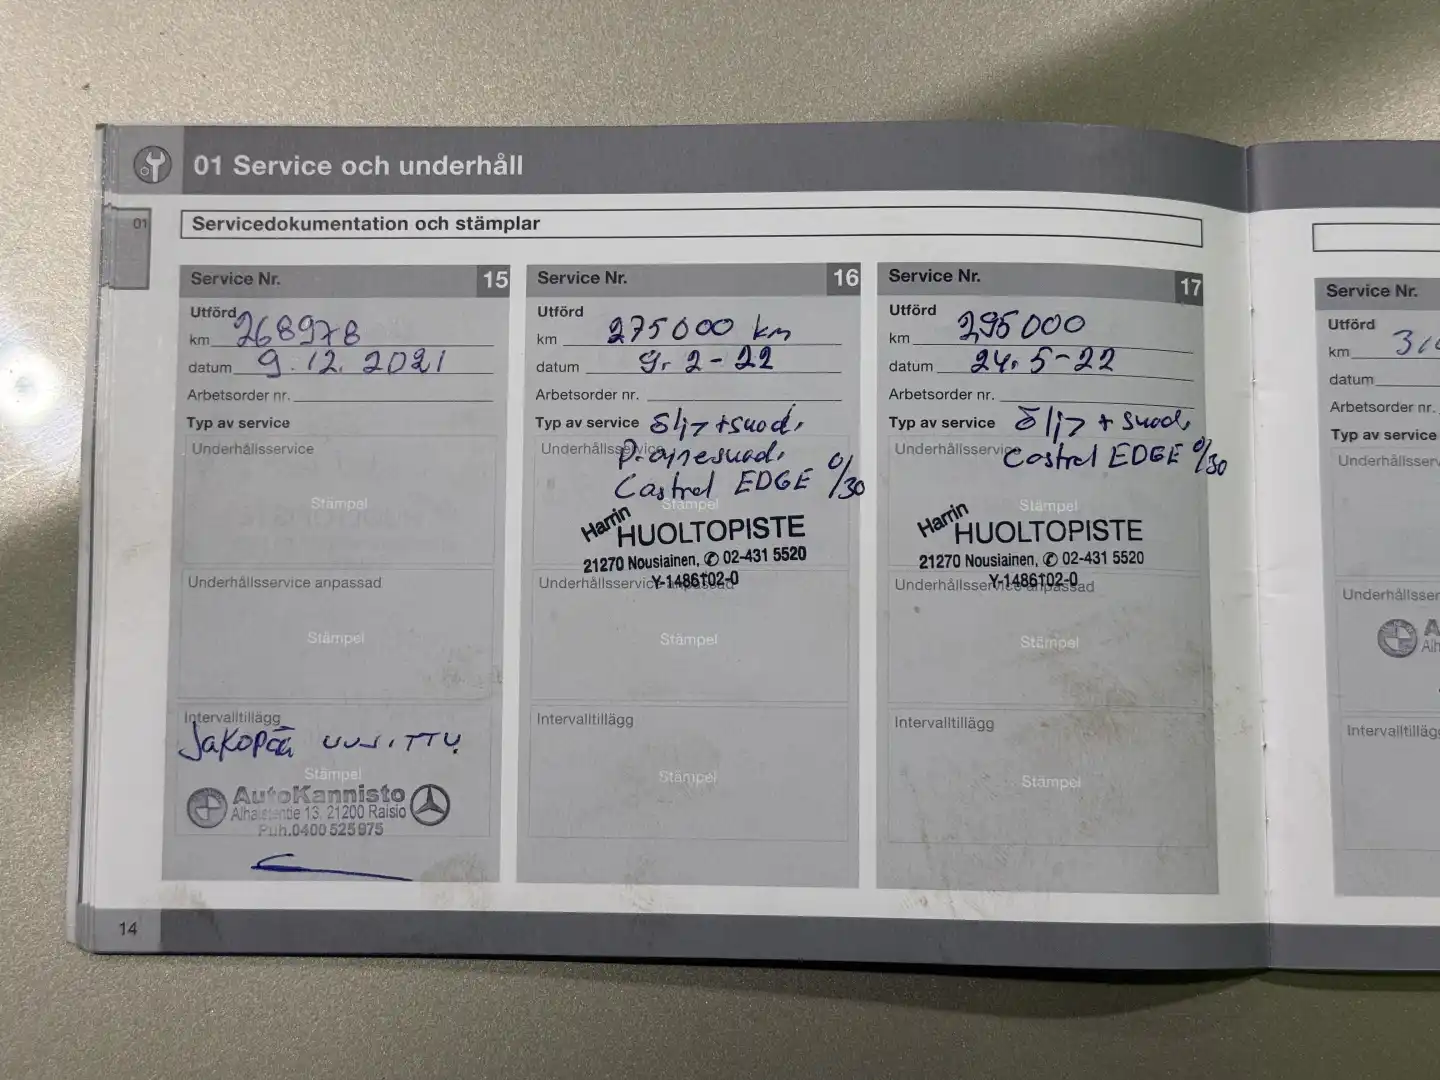 01 Service och underhåll
01
Servicedokumentation och stämplar
Service Nr. 15
Utförd
km 268978
datum 9.12.2021
Arbetsorder nr.
Typ av service
Underhållsservice
Stämpel
Underhållsservice anpassad
Stämpel
Intervalltillägg
Jakopää uusittu
Stämpel
AutoKannisto
13, 21200 Raisio
Puh.0400 525975
Service Nr. 16
Utförd
km 275000 km
datum 9.2-22
Arbetsorder nr.
Typ av service Öljy+suod.
Underhållsservice
Castrol EDGE 0/30
Stämpel
Harrin
HUOLTOPISTE
21270 Nousiainen, ✆ 02-431 5520
Y-1486102-0
Underhållsservice anpassad
Stämpel
Intervalltillägg
Stämpel
Service Nr. 17
Utförd
km 295000
datum 24.5-22
Arbetsorder nr.
Typ av service Öljy + suod.
Underhållsservice
Castrol EDGE 0/30
Stämpel
Harrin
HUOLTOPISTE
21270 Nousiainen, ✆ 02-431 5520
Y-1486102-0
Underhållsservice anpassad
Stämpel
Intervalltillägg
Stämpel
Service Nr.
Utförd
km
datum
Arbetsorder nr.
Typ av service
14